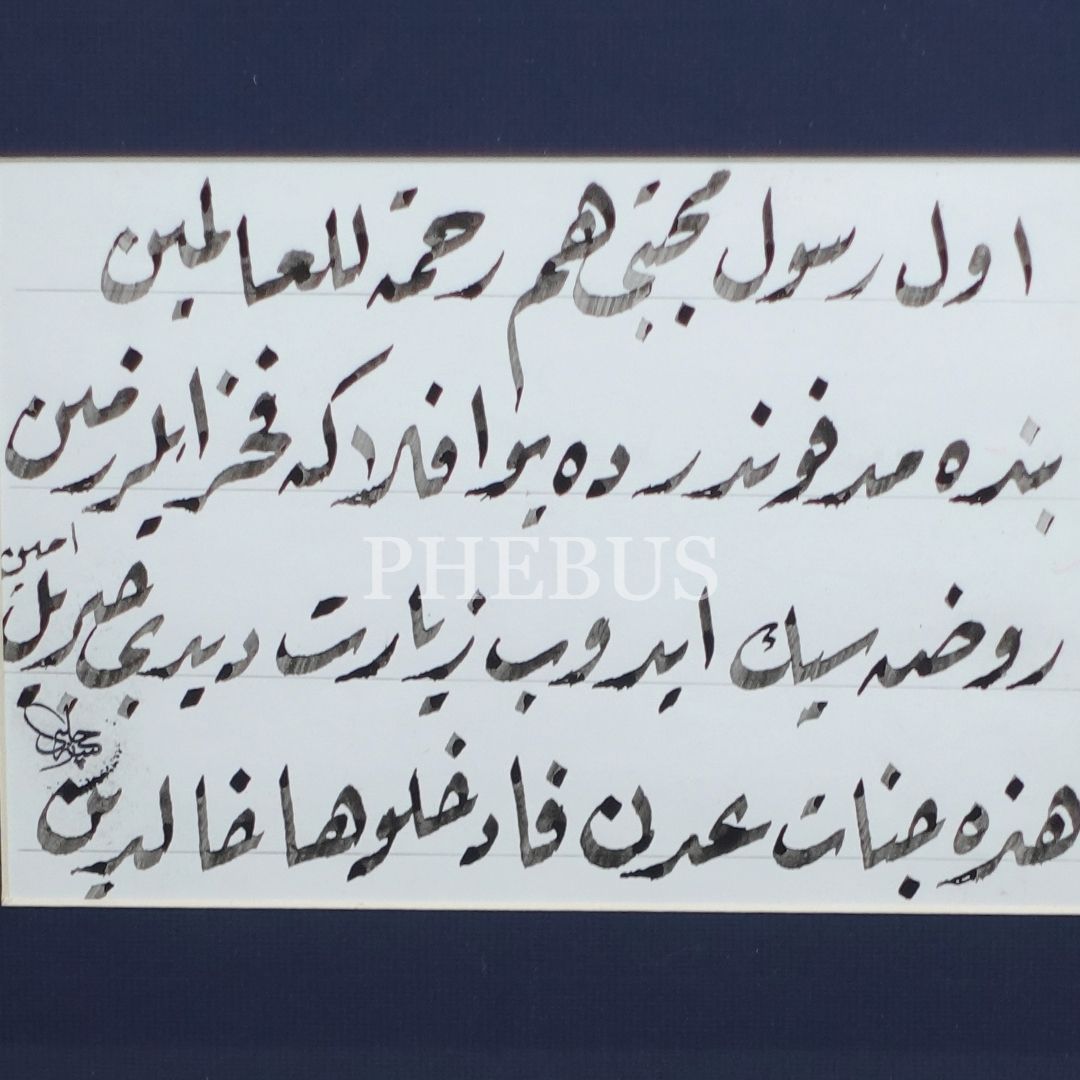 اول رسول مجتبى هم رحمة للعالمين
بنده مدفوندر ده بو افلاكه فخر ايلر زمين
روضه سيك ايدوب زيارت ديدى جبريل امين
هذه جنات عدن فادخلوها خالدين
PHEBUS